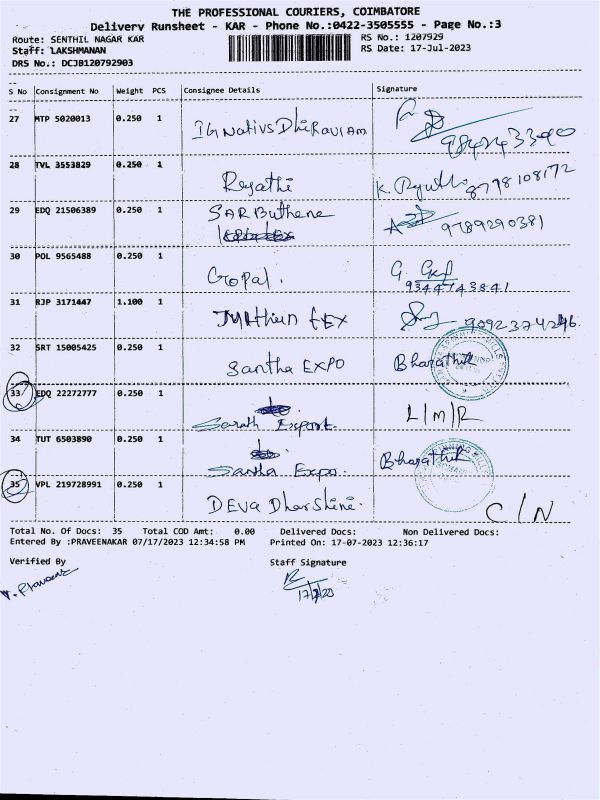 THE PROFESSIONAL COURIERS, COIMBATORE
Delivery Runsheet - KAR - Phone No.:0422-3505555 - Page No.:3
Route: SENTHIL NAGAR KAR RS No.: 1207929
Staff: LAKSHMANAN RS Date: 17-Jul-2023
DRS No.: DCJB120792903
S No Consignment No Weight PCS Consignee Details Signature
27 MTP 5020013 0.250 1 IGNativsDhiRaviam
28 TVL 3553829 0.250 1 Rejathi 8778108172
29 EDQ 21506389 0.250 1 SARButhene 9789290381
30 POL 9565488 0.250 1 Gopal. G.
9344743841
31 RJP 3171447 1.100 1 tex
32 SRT 15005425 0.250 1 Santha EXPO Bharathik
33 EDQ 22272777 0.250 1 Sarath Export. L/M/R
34 TUT 6503890 0.250 1 Santha Expo. Bharathik
35 VPL 219728991 0.250 1 DEVa Dharshini. C/N
Total No. Of Docs: 35 Total COD Amt: 0.00 Delivered Docs: Non Delivered Docs:
Entered By :PRAVEENAKAR 07/17/2023 12:34:58 PM Printed On: 17-07-2023 12:36:17
Verified By Staff Signature